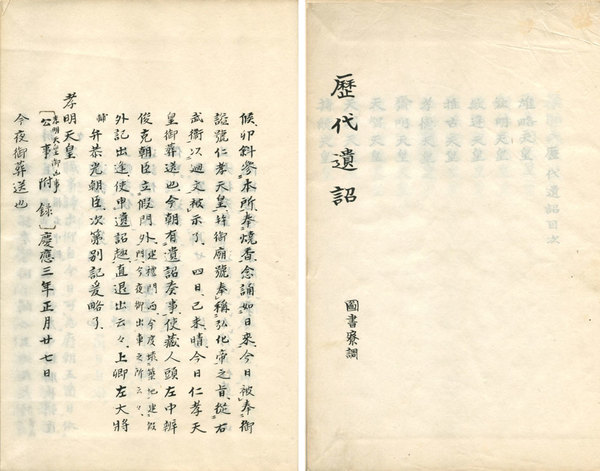 歷代遺詔
圖書寮調
候、卯斜參本所、奉燒香念誦如日來、今日被奉御
諡號仁孝天皇幷御廟號奉稱弘化帝之旨、從右
武衞以廻文被示了、四日、己未晴、今日仁孝天
皇御葬送也、今朝有遺詔奏事、使藏人頭左中辨
俊克朝臣、立假門外、建禮門西今度壞築地建假門今夜御出車之所云々、
外記出逢、使申遺詔趣、直退出云々、上卿左大將
弁恭光朝臣、次第別記爰略了、
孝明天皇
〔孝明天皇御凶事公事附錄〕慶應三年正月廿七日
今夜御葬送也